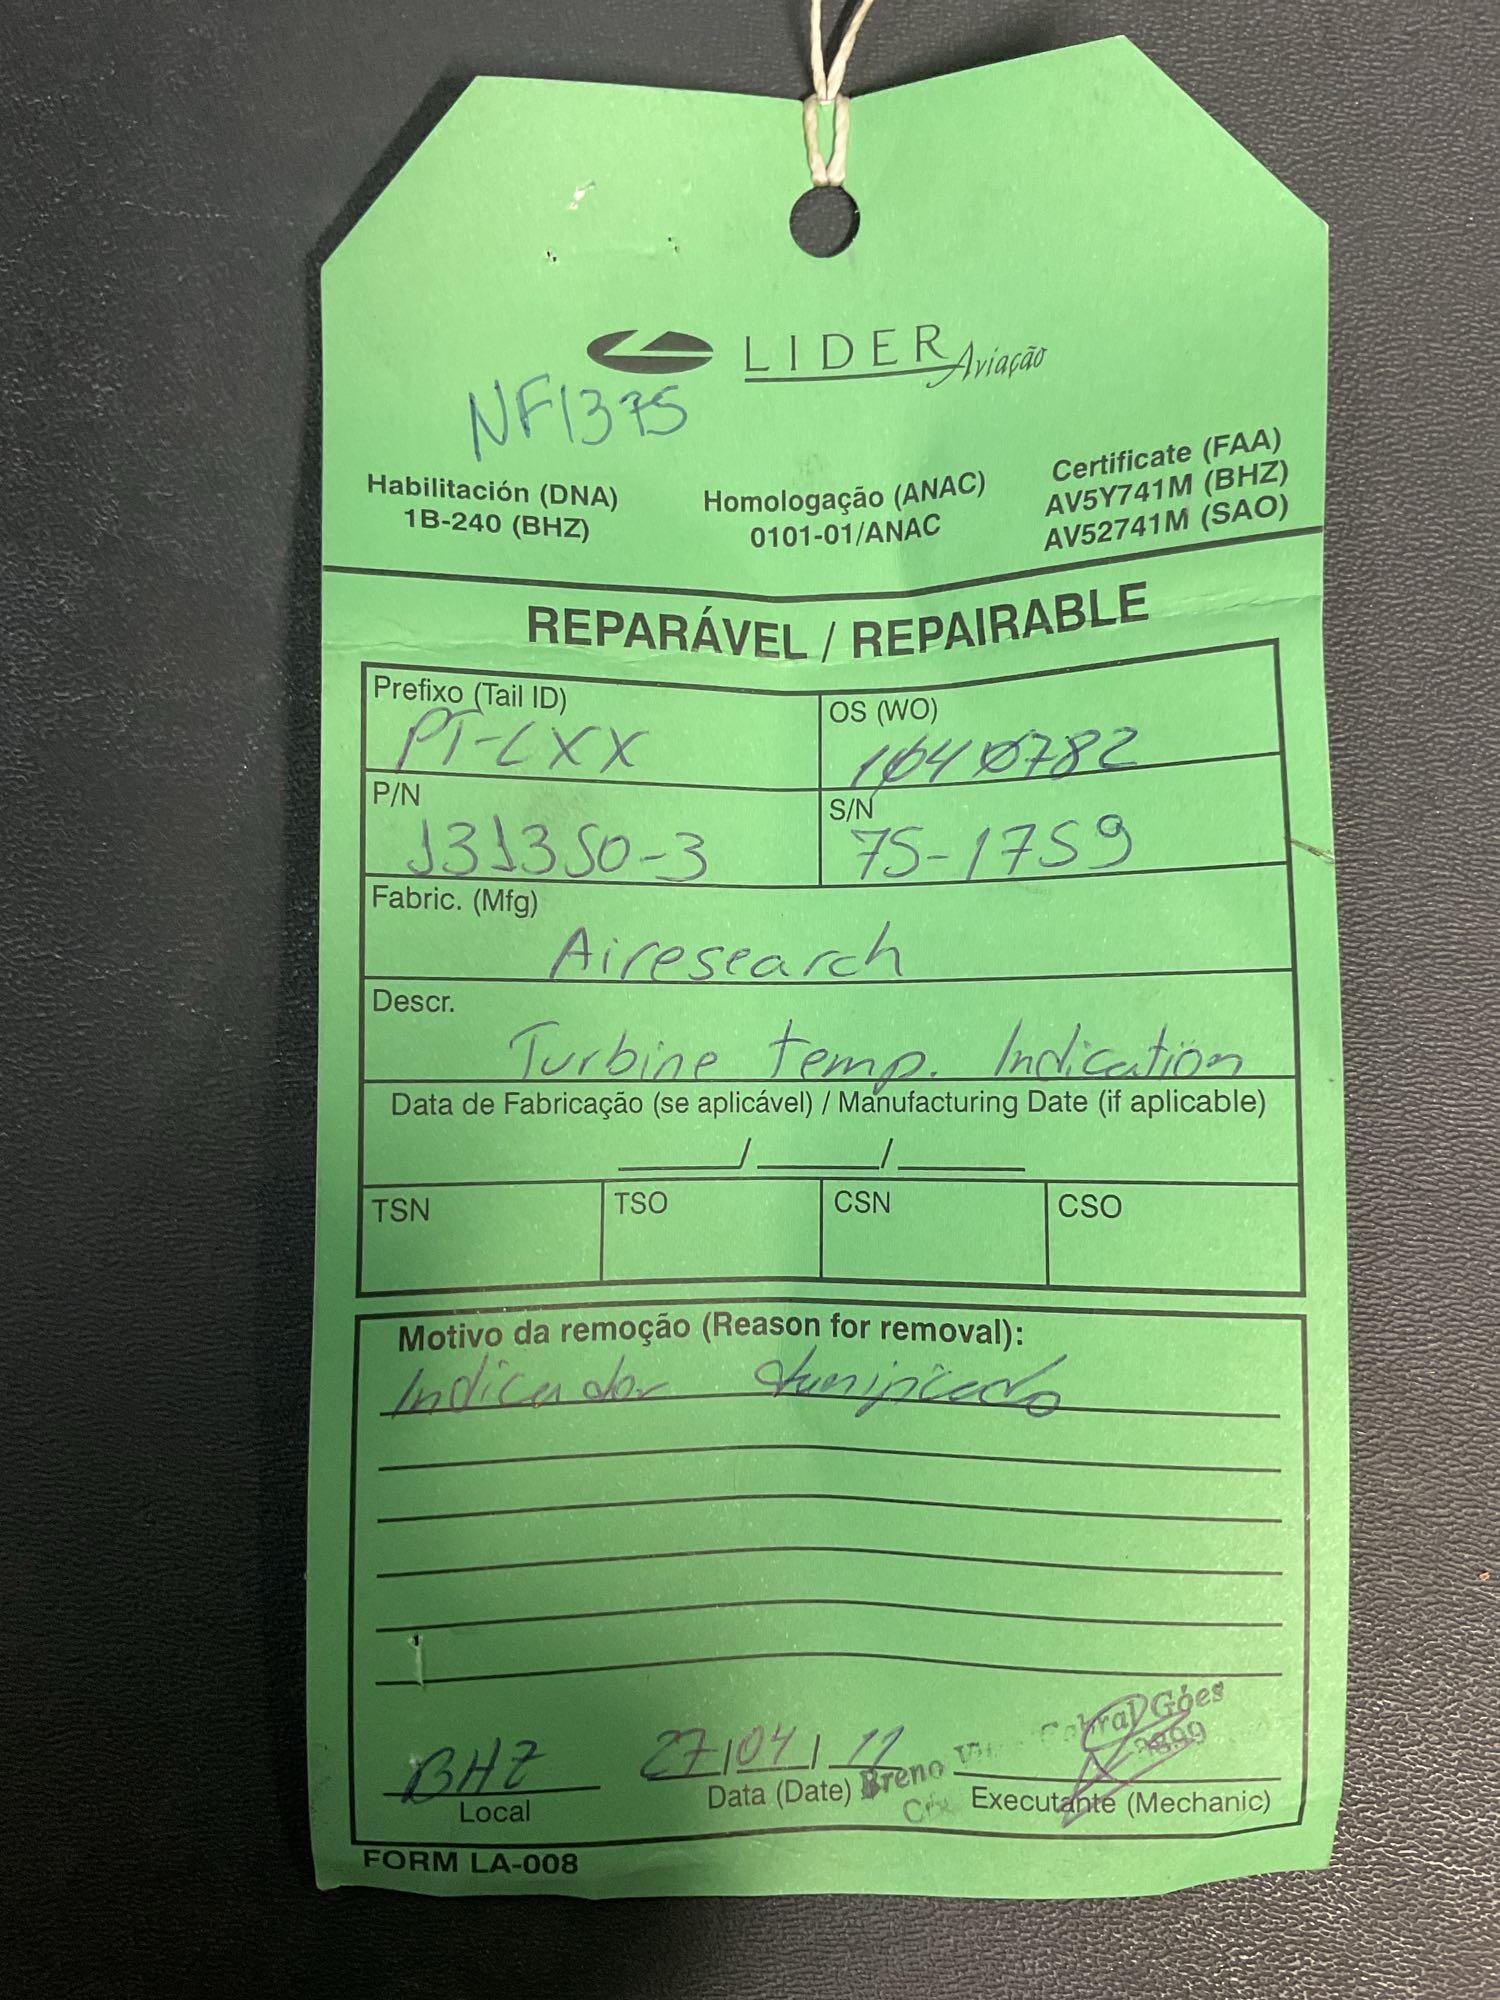 LIDER Aviação
NF1375
Habilitación (DNA)
1B-240 (BHZ)
Homologação (ANAC)
0101-01/ANAC
Certificate (FAA)
AV5Y741M (BHZ)
AV52741M (SAO)
REPARÁVEL / REPAIRABLE
Prefixo (Tail ID)
PT-LXX
OS (WO)
1040782
P/N
131350-3
S/N
75-1759
Fabric. (Mfg)
Airesearch
Descr.
Turbine temp. Indication
Data de Fabricação (se aplicável) / Manufacturing Date (if aplicable)
/ /
TSN TSO CSN CSO
Motivo da remoção (Reason for removal):
Indicador danificado
BHZ 27/04/11
Breno Cabral Góes
Local Data (Date) Executante (Mechanic)
FORM LA-008